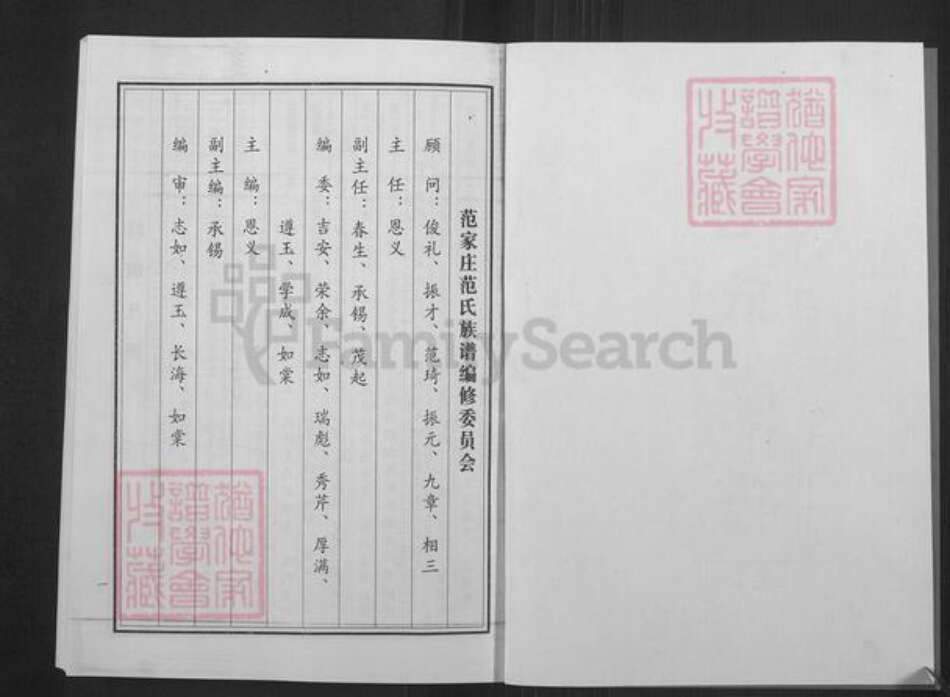 范家庄范氏族谱编修委员会
顾 问：俊礼、振才、范琦、振元、九章、相三
主 任：恩义
副主任：春生、承锡、茂起
编 委：吉安、荣余、志如、瑞彪、秀芹、厚满、
遵玉、学成、如棠
主 编：恩义
副主编：承锡
编 审：志如、遵玉、长海、如棠
一
FamilySearch
猶他家
譜學會
收藏
猶他家
譜學會
收藏